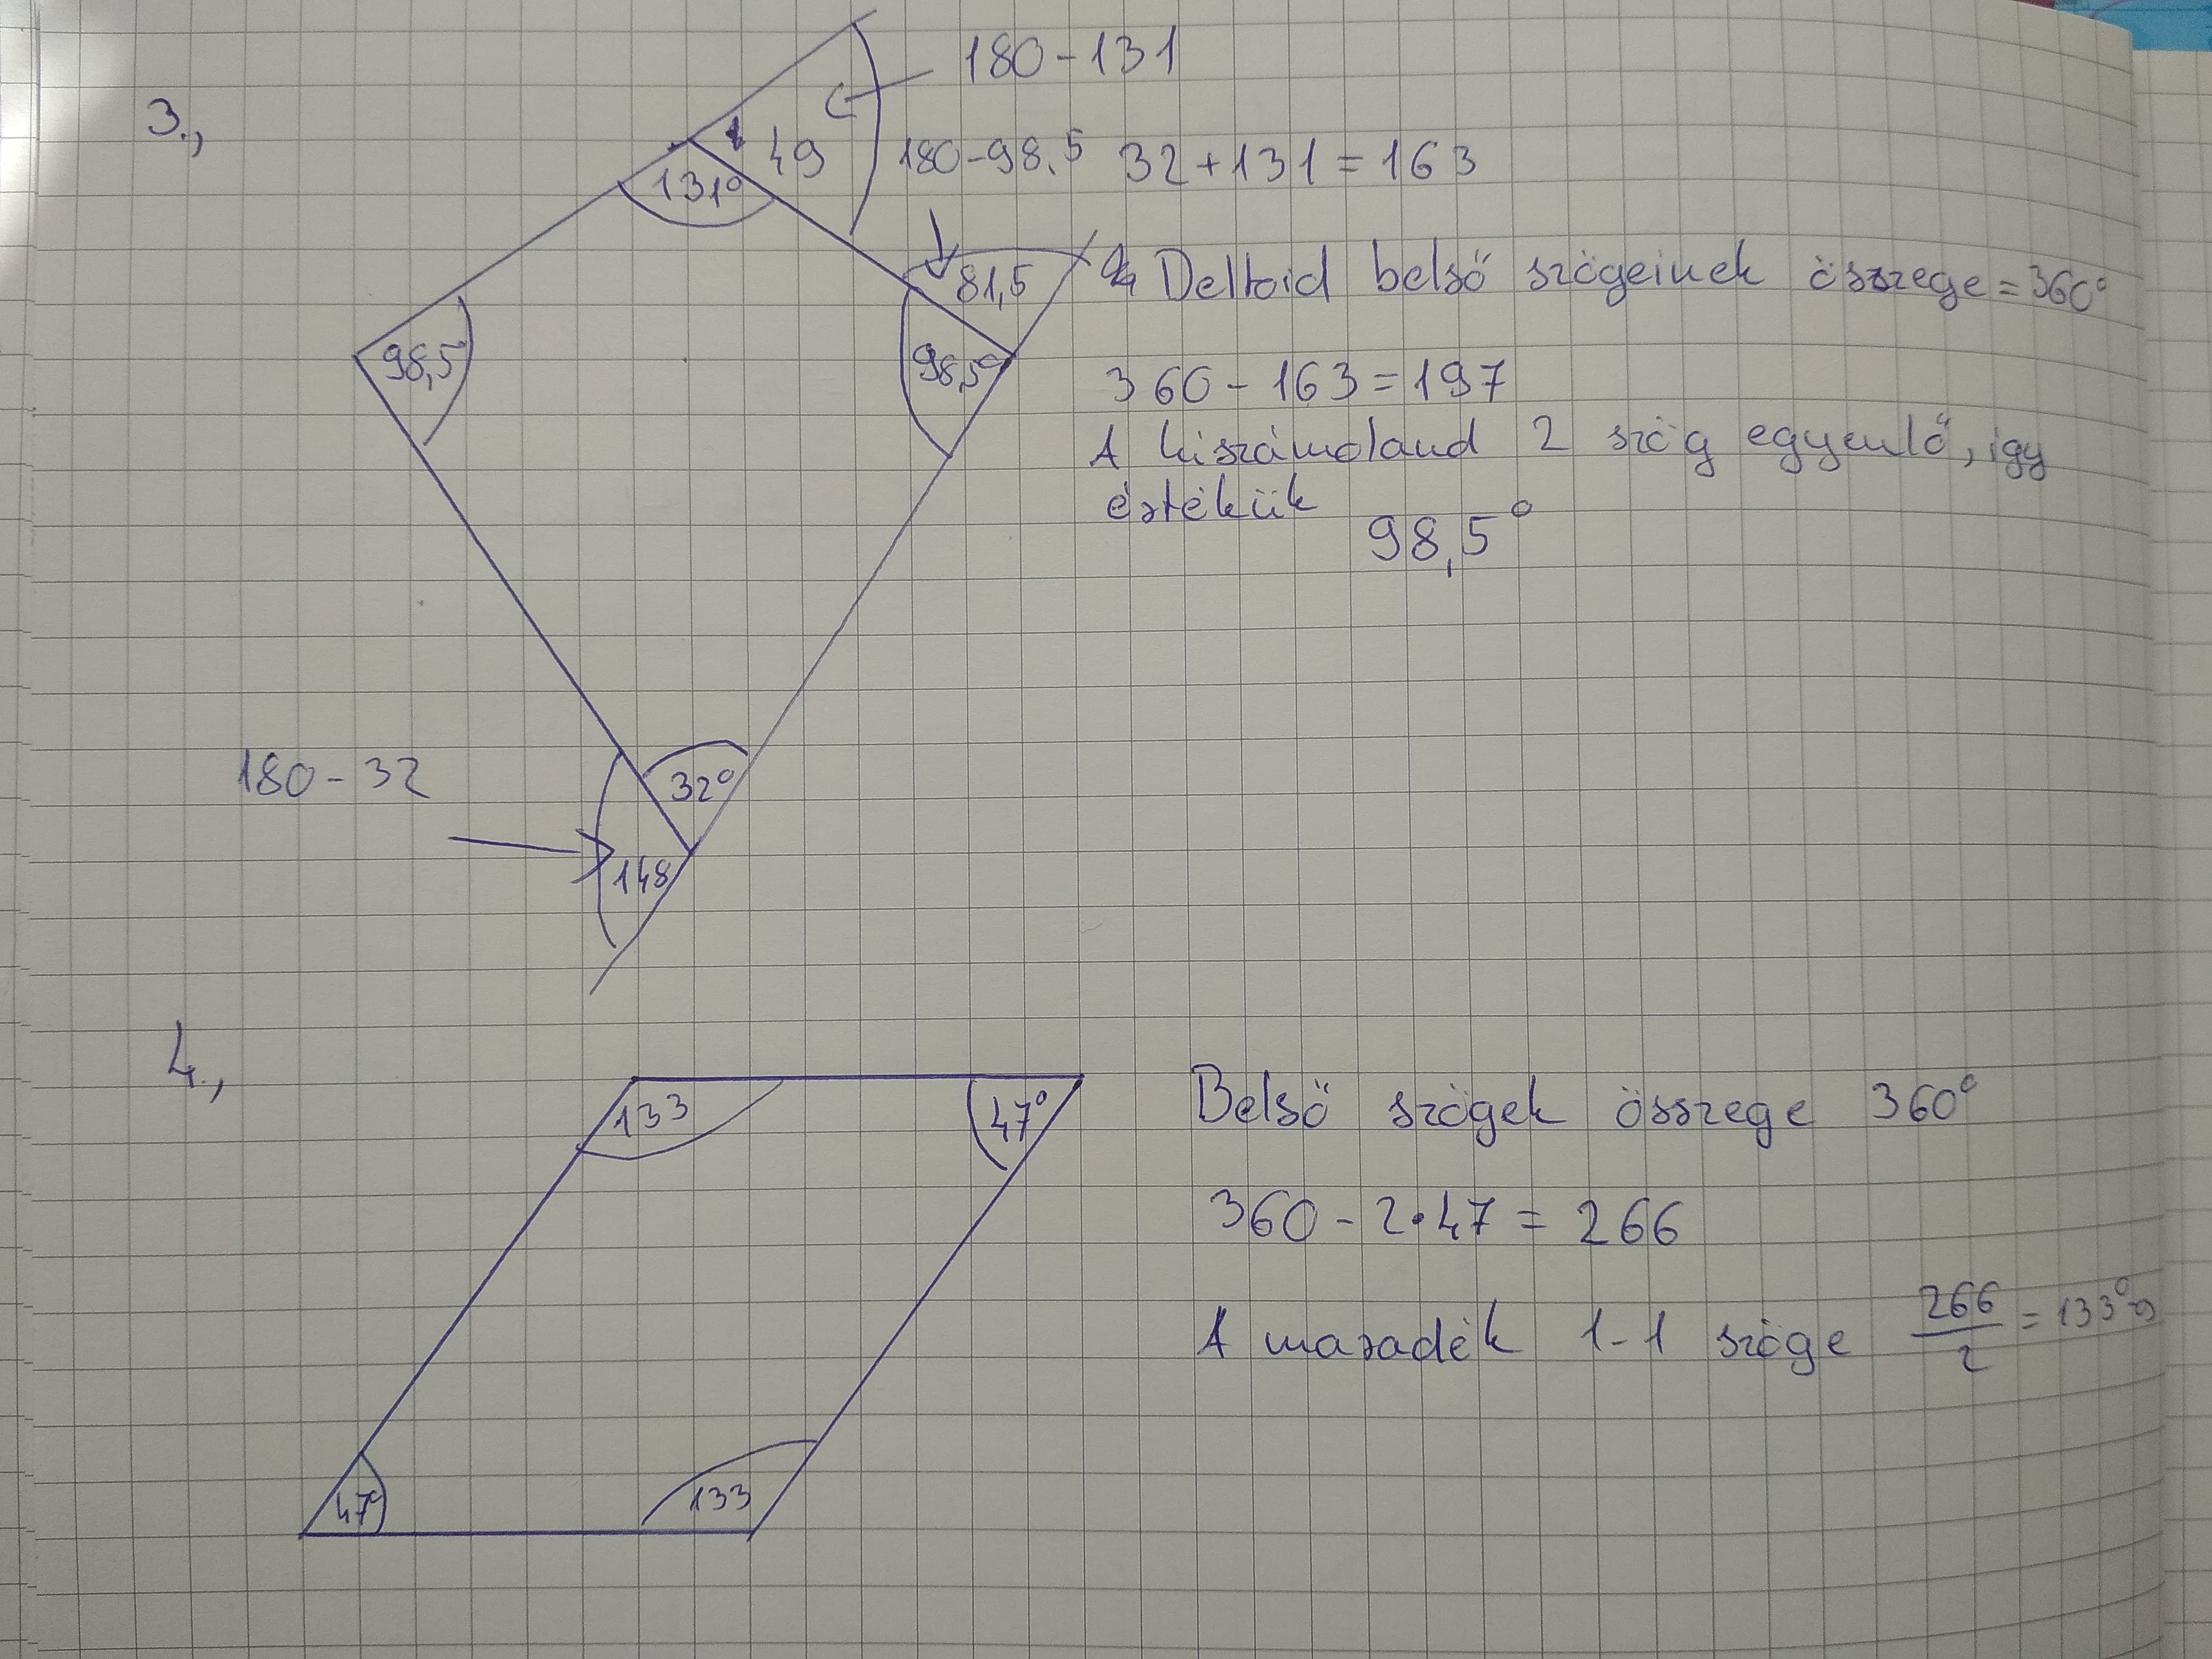 3.,
180-131
49
131°
180-98.5
32+131=163
81,5
Deltoid belső szögeinek összege=360°
98,5
98,5°
360-163=197
A kiszámoland 2 szög egyenlő, így
értékük
98,5°
180-32
32°
148
4.,
133
47°
Belső szögek összege 360°
360-2•47=266
A maradék 1-1 szöge 266/2=133°
47°
133